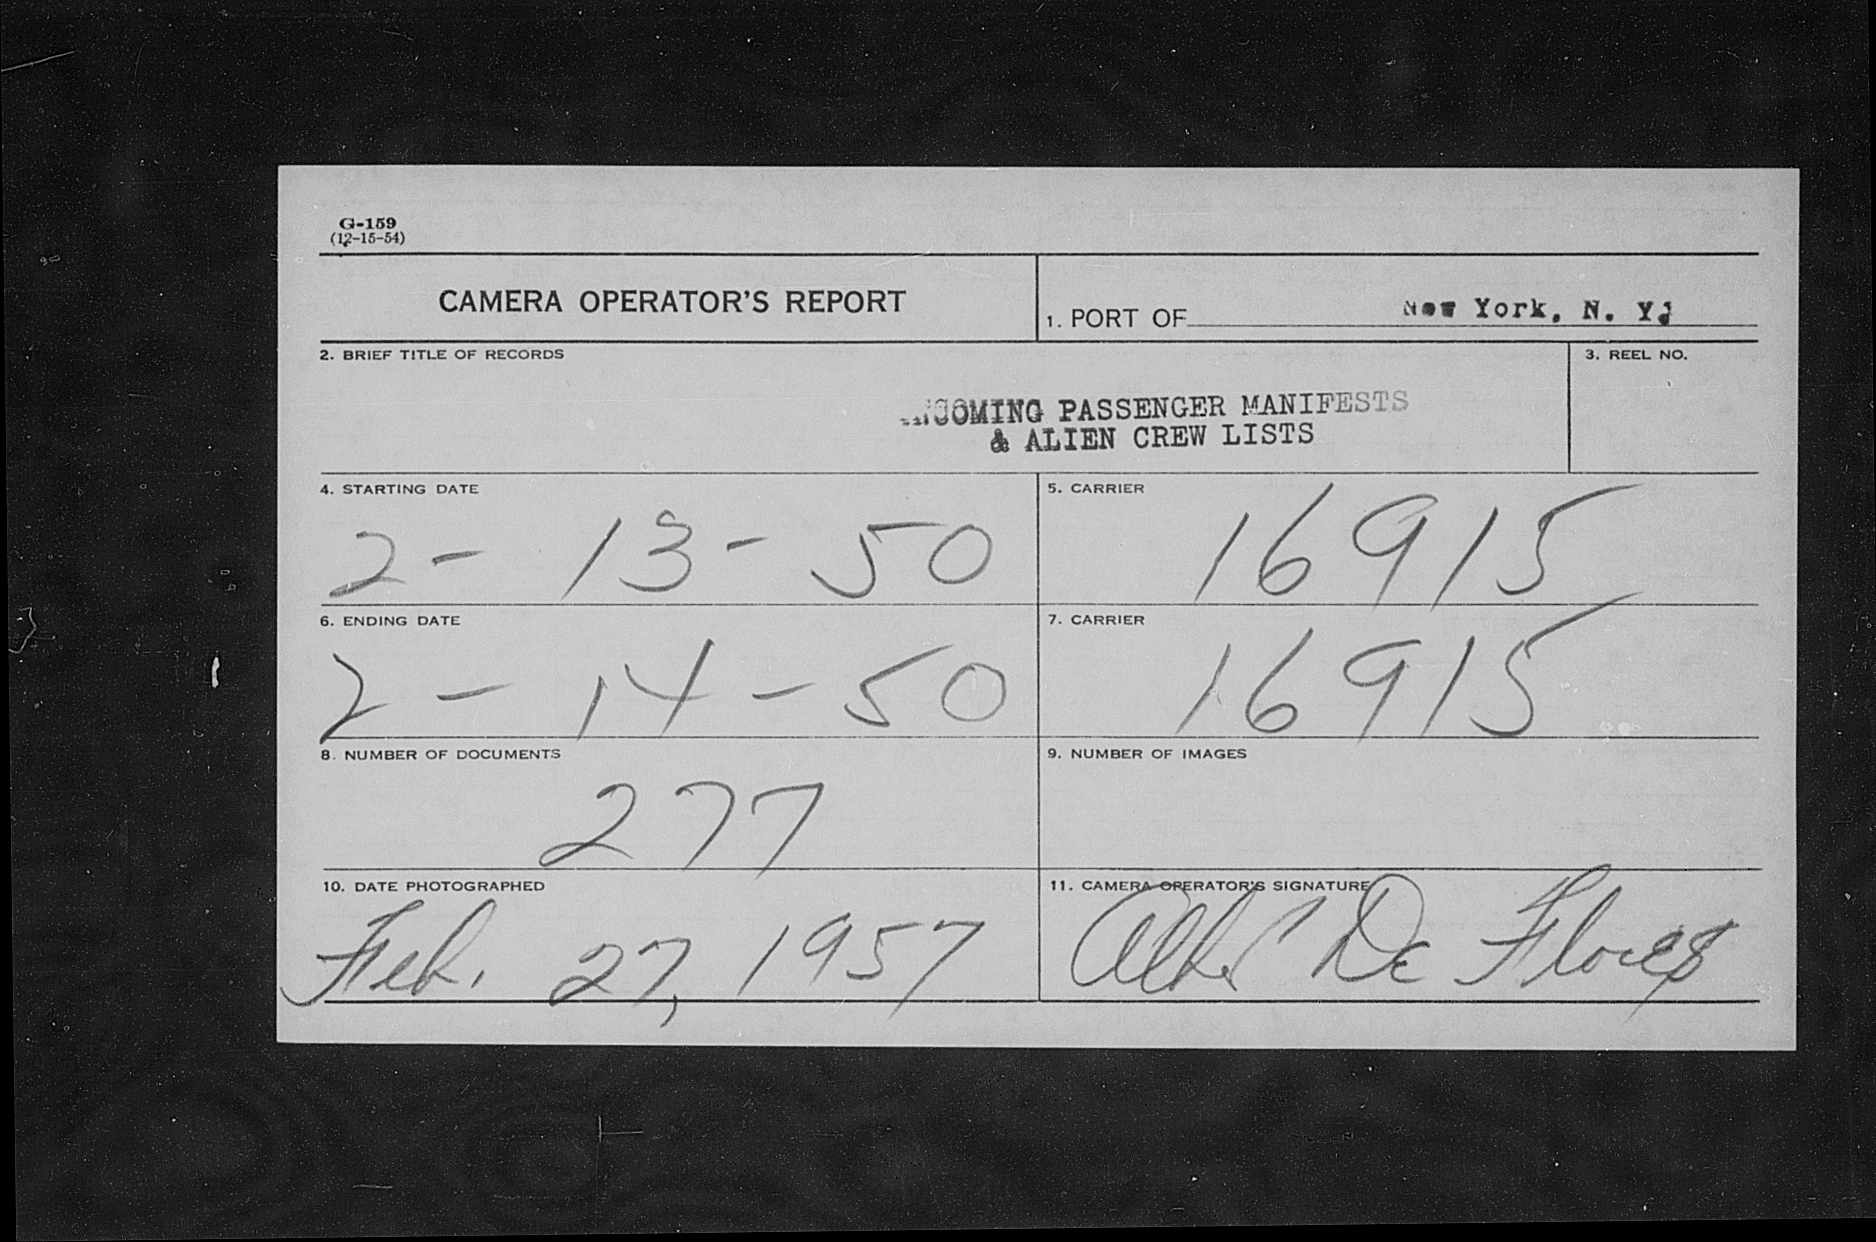 G-159
(12-15-54)
CAMERA OPERATOR'S REPORT
1. PORT OF New York, N. Y.
2. BRIEF TITLE OF RECORDS
3. REEL NO.
INCOMING PASSENGER MANIFESTS
& ALIEN CREW LISTS
4. STARTING DATE
2-13-50
5. CARRIER
16915
6. ENDING DATE
2-14-50
7. CARRIER
16915
8. NUMBER OF DOCUMENTS
277
9. NUMBER OF IMAGES
10. DATE PHOTOGRAPHED
Feb. 27, 1957
11. CAMERA OPERATOR'S SIGNATURE
De Flores